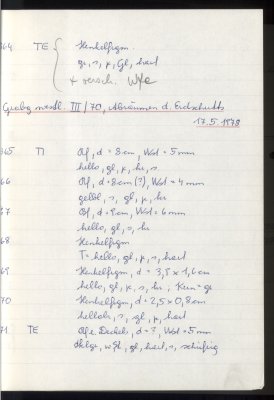 364 TE Henkelfrgm.
gr, s, k, Gl, hart
+ versch. Wfe
Grabg nördl. III/70, Abräumen d. Erdschutts
17.5.1978
365 TI Rf, d = 8cm, Wst = 5mm
hello, gl, k, hr, s
66 Rf, d = 8cm (?), Wst = 4mm
gelbl, s, gl, k, hr
67 Bf, d = 9cm, Wst = 6mm
hello, gl, s, hr
68 Henkelfrgm
T = hello, gl, k, s, hart
69 Henkelfrgm, d = 3,8 x 1,6cm
hello, gl, k, s, hr, Kern = gr
70 Henkelfrgm, d = 2,5 x 0,8cm
s, gl, k, hart
71 TE Rf e. Deckels, d = ?, Wst = 5mm
gl, hart, s, schiefrig